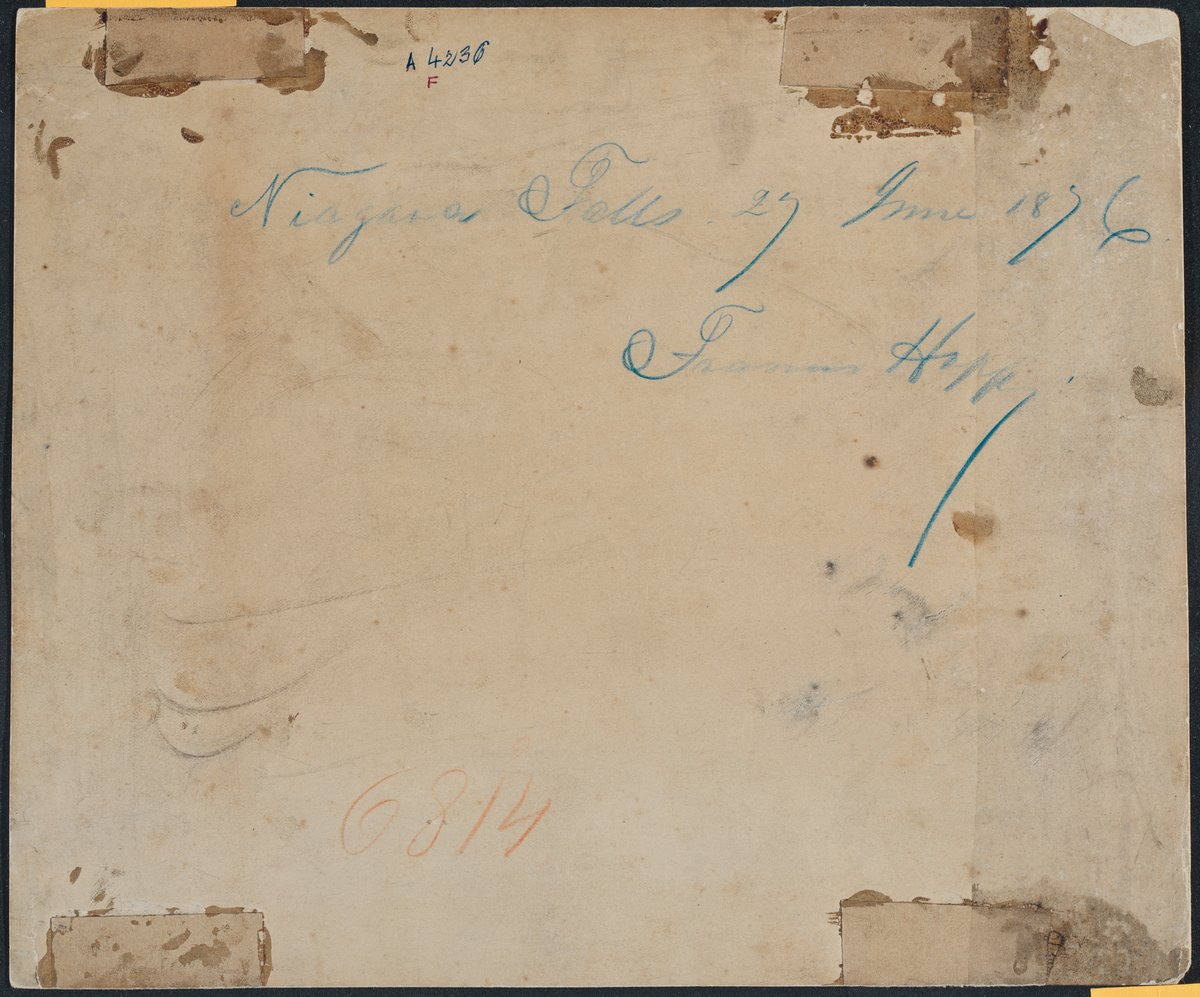 A 4236
F
Niagara Falls. 27 June 1876.
Francis Hopp
6814